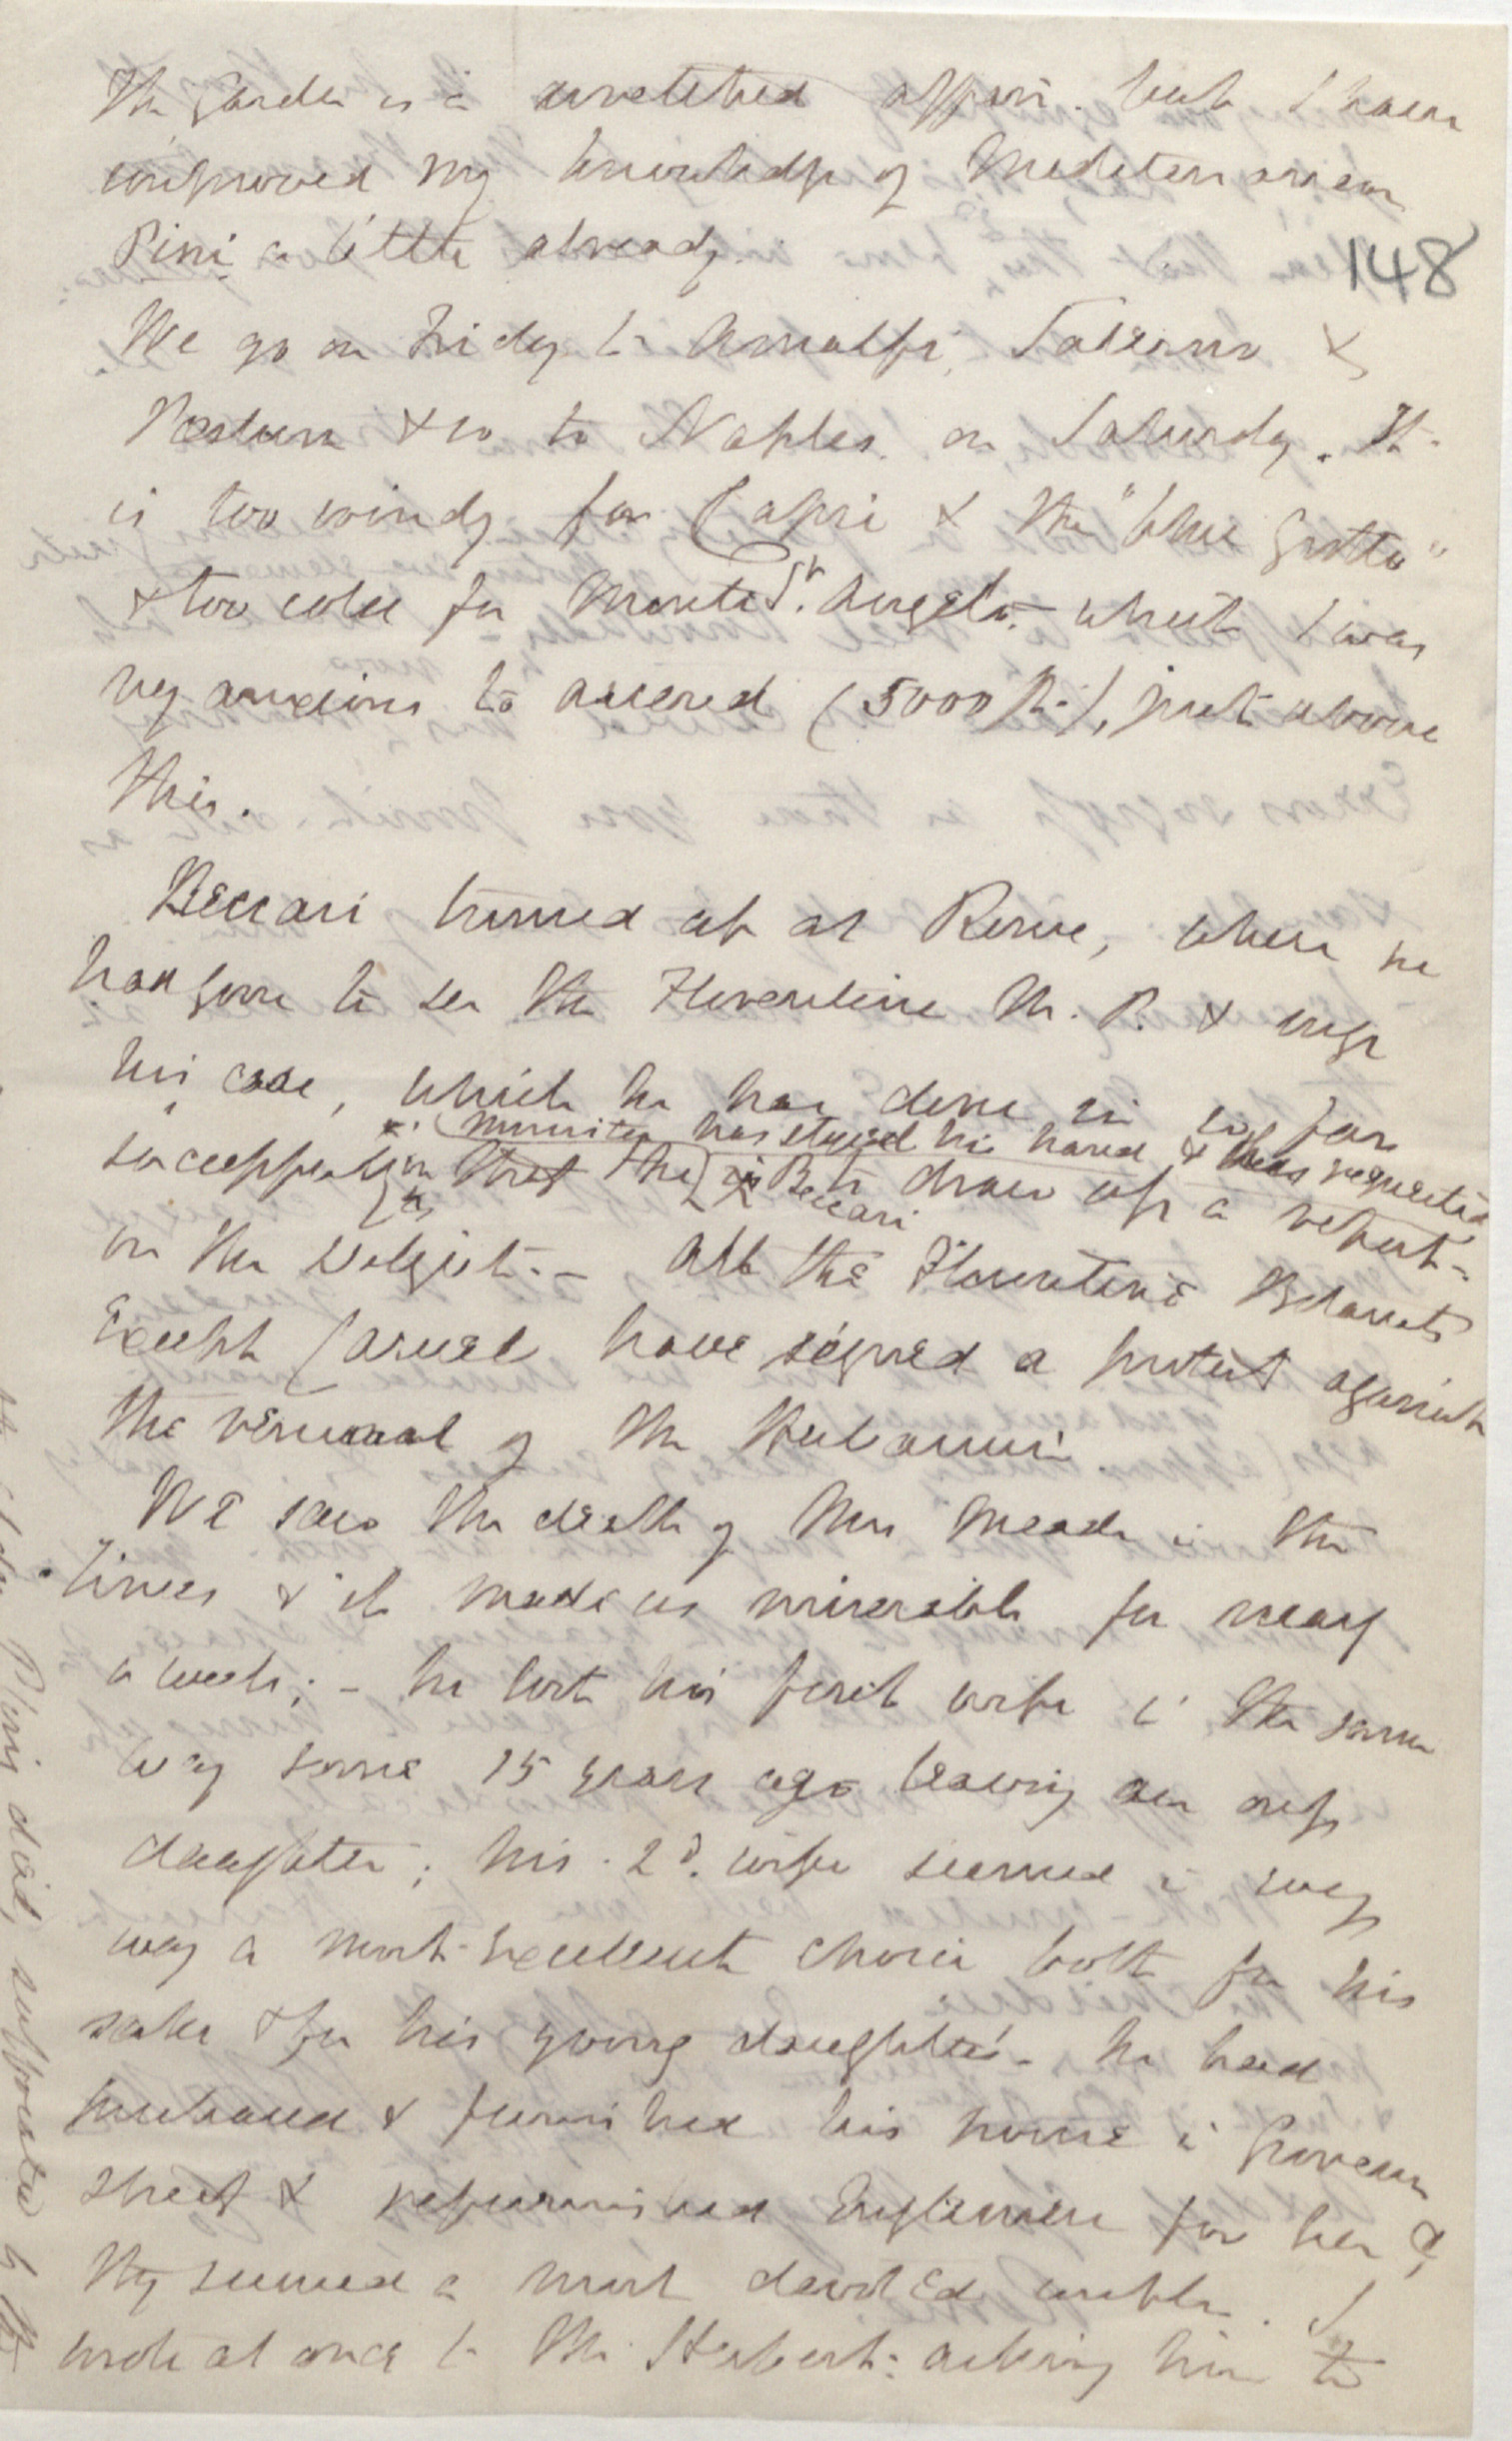 The Garden is a wretched affair. but I have
improved my knowledge of Mediterranean
Pini a little already.
148
We go on Friday to Amalfi, Salerno &
Pæstum & so to Naples on Saturday. It
is too windy for Capri & the "blue grotto"
& too cold for Monte St. Angelo. which I was
very anxious to ascend (5000 ft.), just above
this.
Beccari turned up at Rome, where he
had gone to see the Florentine M. P. & urge
his case, which he has done in so far
minister has stayed his hand & has requested
successfully that the Beccari to draw up a report
on the subject. — All the Florentine Botanists
except Caruel have signed a protest against
the removal of the Herbarium.
We saw the death of Mrs Meade in the
Times & it made us miserable for nearly
a week; – he lost his first wife in the same
way some 15 years ago leaving an only
daughter; his 2d. wife seemed in every
way a most excellent choice both for his
sake & for his young daughter's - he had
purchased & furnished his house in Grosvenor
Street & refurnished Englemere for her &
they seemed a most devoted couple. I
wrote at once to Mr Herbert: asking him to
Pini did, supported by the